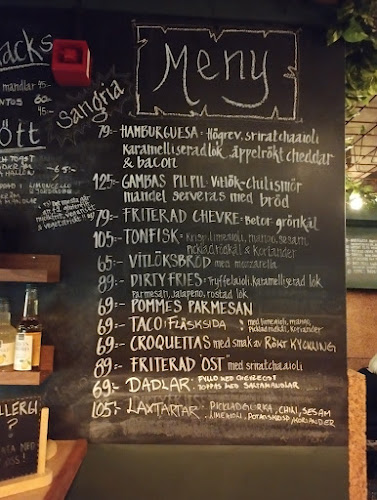 Meny
Sangria
79:- HAMBURGUESA: Högrev, sriratchaaioli
karamelliseradlök, äppelrökt cheddar
& bacon
125:- GAMBAS PILPIL: Vitlök-chilismör
mandel serveras med bröd
79:- FRITERAD CHEVRE: Betor grönkål
105:- TONFISK: Krisp, limeaioli, mango, sesam,
picklad rödkål & koriander
65:- VITLÖKSBRÖD med mozzarella
89:- DIRTY FRIES: Tryffelaioli, karamelliserad lök
Parmesan, jalapeno, rostad lök
69:- POMMES PARMESAN
69:- TACO: FLÄSKSIDA • med limeaioli, mango,
picklad rödkål, koriander
69:- CROQUETTAS med smak av RÖKT KYCKLING
89:- FRITERAD "OST" med sriratchaaioli
69:- DADLAR: FYLLD MED CHEVREOST
TOPPAS MED SALTAMANDLAR
105:- LAXTARTAR: PICKLAD GURKA, CHILI, SESAM
LIMEAIOLI, KORIANDER
nacks
mandlar 45:-
60:-
45:-
ött
65:-
LLERGI
?